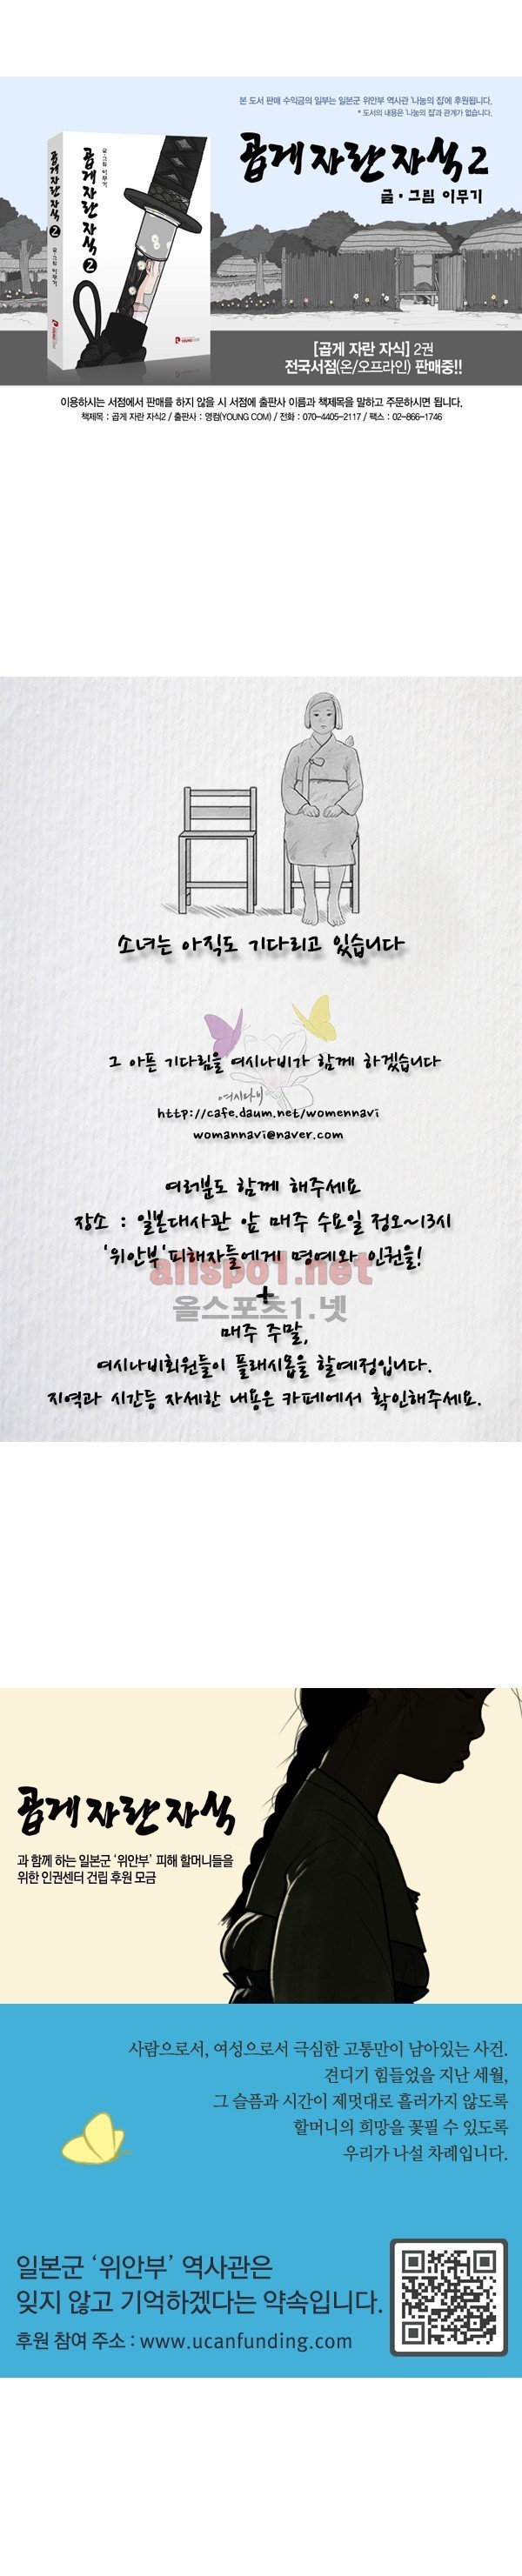 본 도서 판매 수익금의 일부는 일본군 위안부 역사관 '나눔의 집'에 후원됩니다.
* 도서의 내용은 '나눔의 집'과 관계가 없습니다.
곱게 자란 자식 2
글·그림 이무기
곱게 자란 자식 2 글·그림 이무기
글·그림 이무기
곱게 자란 자식 2
YOUNG COM
[곱게 자란 자식] 2권
전국서점(온/오프라인) 판매중!!
이용하시는 서점에서 판매를 하지 않을 시 서점에 출판사 이름과 책제목을 말하고 주문하시면 됩니다.
책제목 : 곱게 자란 자식2 / 출판사 : 영컴(YOUNG COM) / 전화 : 070-4405-2117 / 팩스 : 02-866-1746
소녀는 아직도 기다리고 있습니다
그 아픈 기다림을 여시나비가 함께 하겠습니다
여시나비
http://cafe.daum.net/womennavi
womannavi@naver.com
여러분도 함께 해주세요
장소 : 일본대사관 앞 매주 수요일 정오~13시
'위안부'피해자들에게 명예와 인권을!
allspo1.net
+
올스포츠1.넷
매주 주말,
여시나비회원들이 플래시몹을 할예정입니다.
지역과 시간등 자세한 내용은 카페에서 확인해주세요.
곱게 자란 자식
과 함께 하는 일본군 '위안부' 피해 할머니들을
위한 인권센터 건립 후원 모금
사람으로서, 여성으로서 극심한 고통만이 남아있는 사건.
견디기 힘들었을 지난 세월,
그 슬픔과 시간이 제멋대로 흘러가지 않도록
할머니의 희망을 꽃필 수 있도록
우리가 나설 차례입니다.
일본군 '위안부' 역사관은
잊지 않고 기억하겠다는 약속입니다.
후원 참여 주소 : www.ucanfunding.com